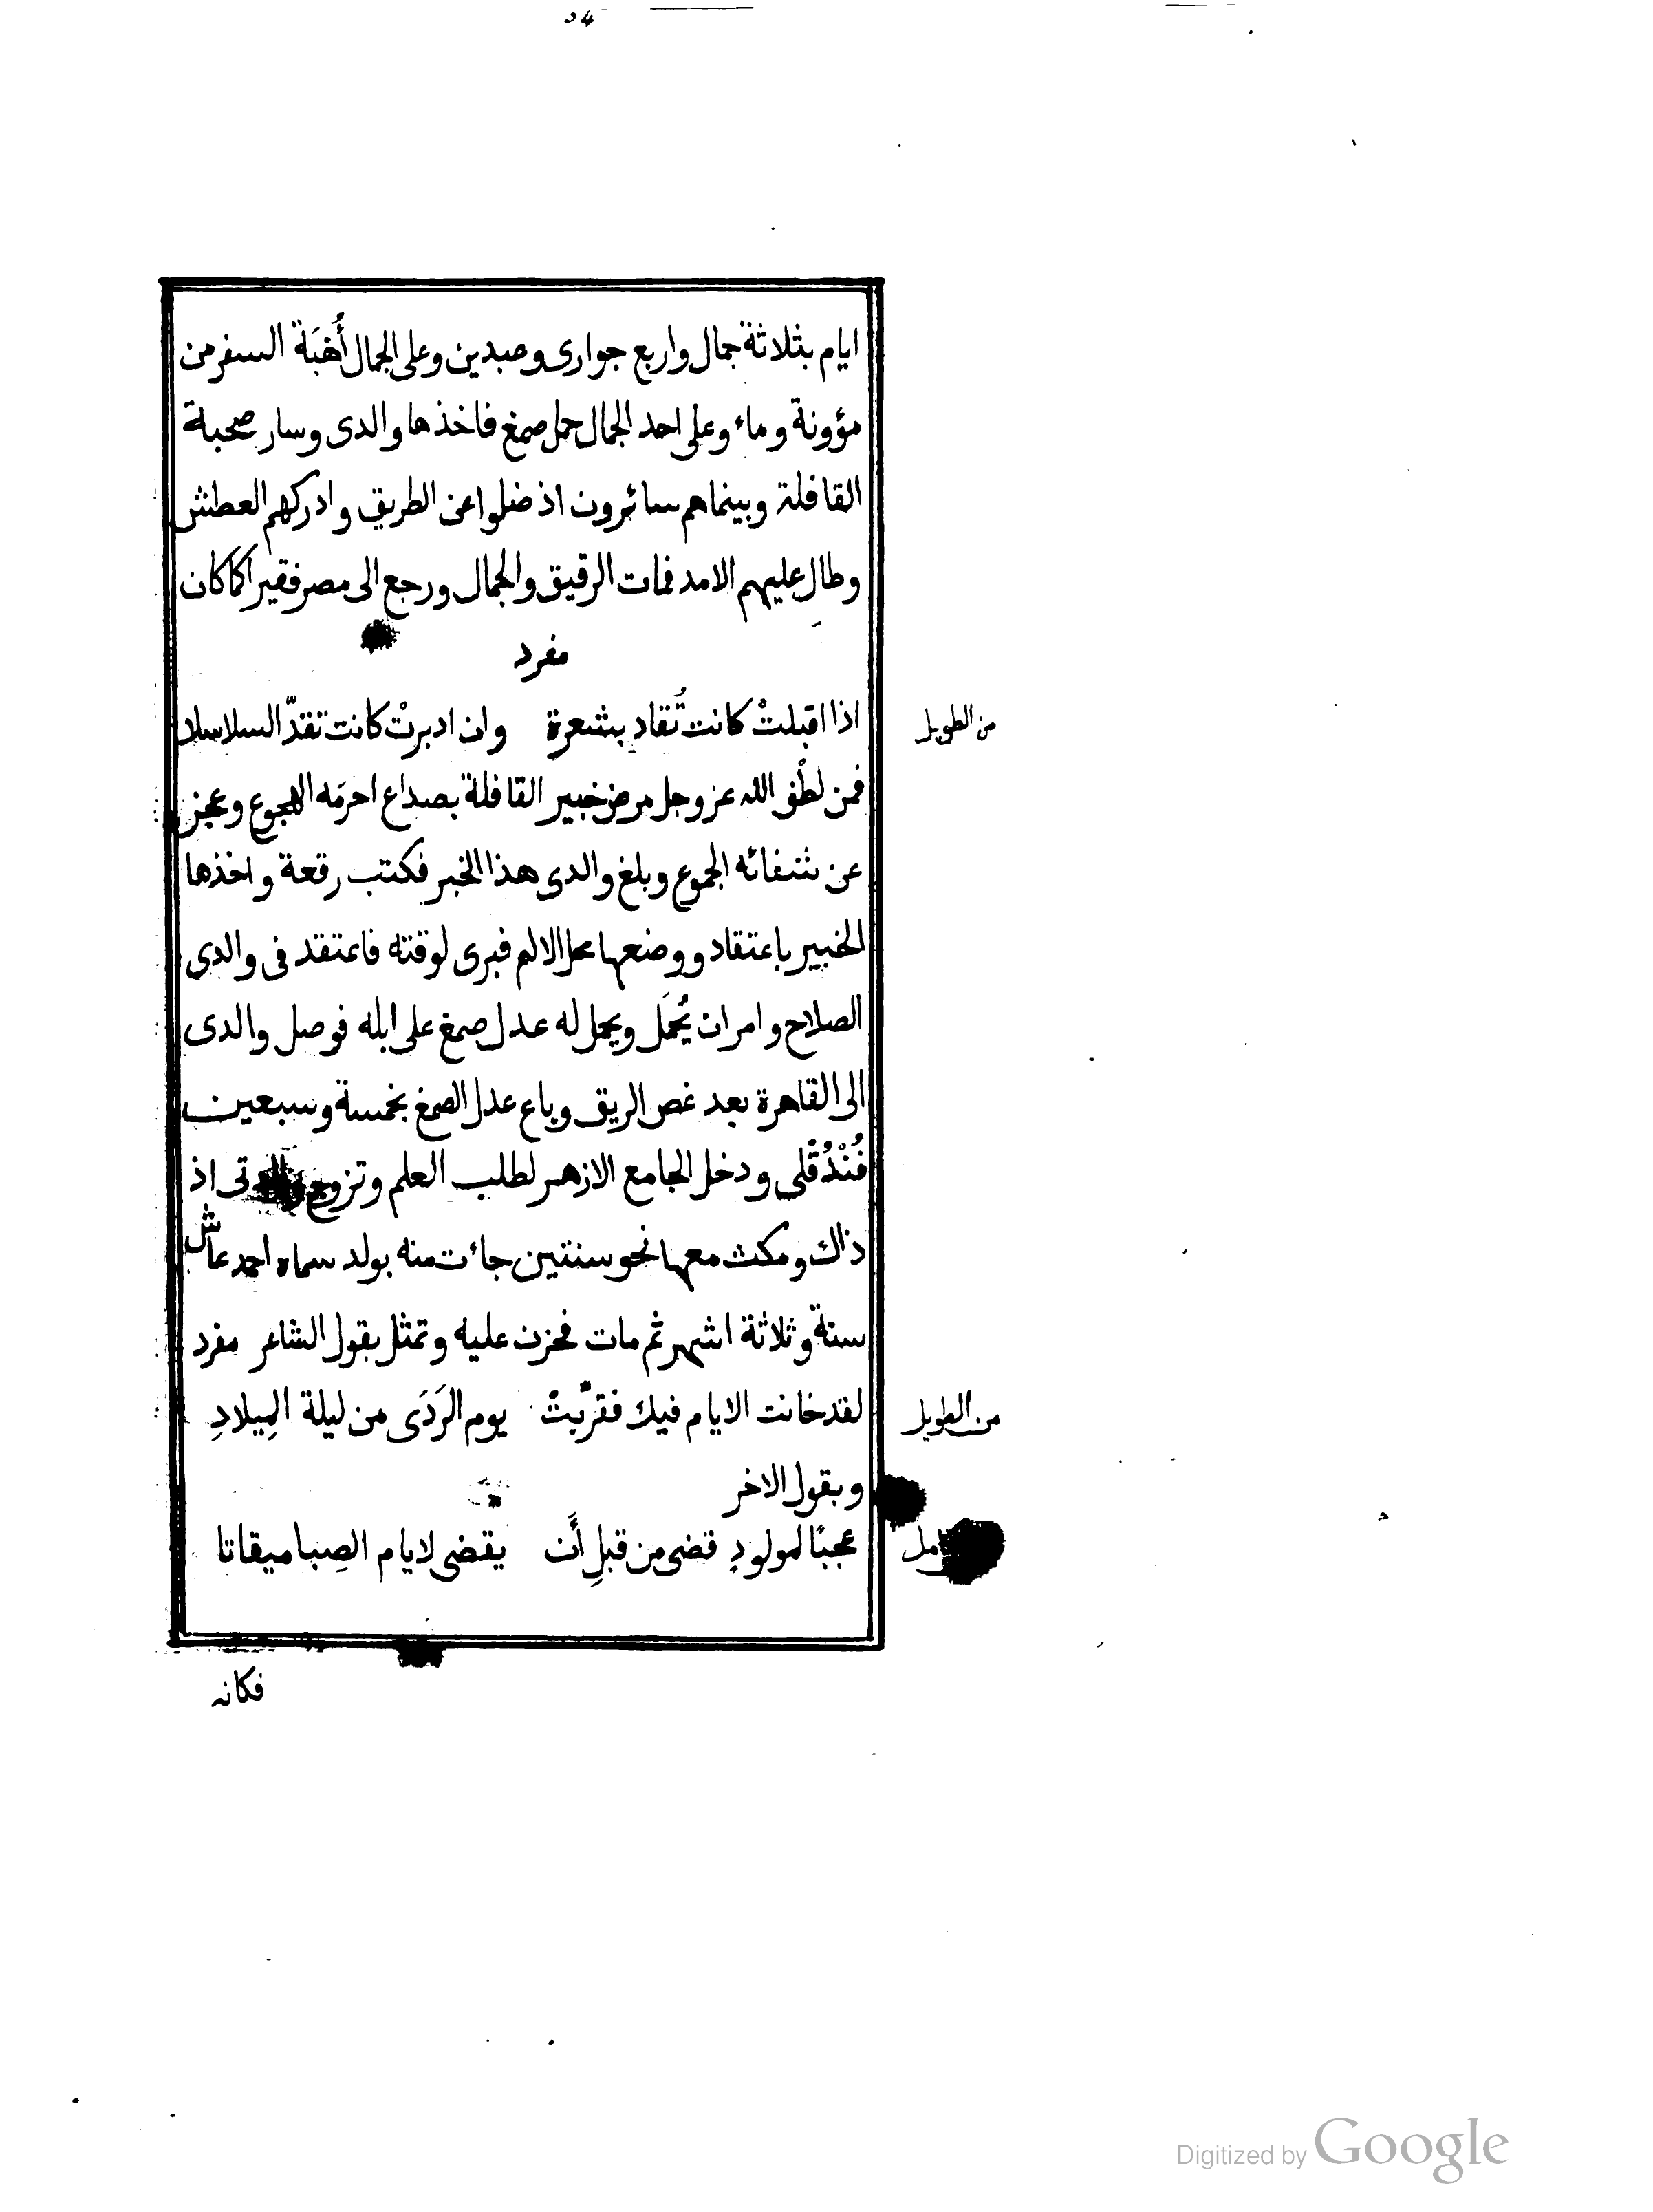 34
ايام بثلاثة جمال واربع جوارى وعبدين وعلى الجمال أُهْبَة السفر من
مؤونة وماء وعلى احد الجمال حمل صمغ فاخذها والدى وسار صحبة
القافلة وبينما هم سائرون اذ ضلوا عن الطريق وادركهم العطش
وطال عليهم الامد فمات الرقيق والجمال ورجع الى مصر فقيرا كما كان
مفرد
اذا اقبلتْ كانت تُقاد بشعرة وان ادبرتْ كانت تقدّ السلاسلا
من الطويل
فمن لطْف الله عز وجل مرض خبير القافلة بصداع احرمَه الهجوع وعجز
عن شفائه الجموع وبلغ والدى هذا الخبر فكتب رقعة واخذها
الخبير باعتقاد ووضعها محل الالم فبرى لوقته فاعتقد فى والدى
الصلاح وامر ان يُحمَل ويحمل له عدل صمغ على ابله فوصل والدى
الى القاهرة بعد غص الريق وباع عدل الصمغ بخمسة وسبعين
فُنْدُقْلى ودخل الجامع الازهر لطلب العلم وتزوج والدتى اذ
ذاك ومكث معها نحو سنتين جائت منه بولد سماه احمد عاش
سنة وثلاثة اشهر ثم مات فحزن عليه وتمثل بقول الشاعر مفرد
لقد خانت الايام فيك فقرّبتْ يوم الرَدَى من ليلة المِيلادِ
من الطويل
وبقول الاخر
عجبًا لمولودٍ قضى من قبلِ أَن يقضى لايام الصِبا ميقاتا
فكانه
Digitized by Google